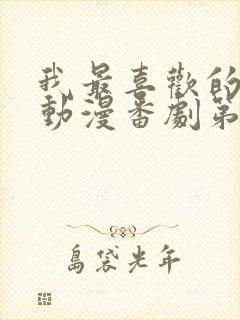 我最喜歡的
動漫番劇第
島袋光年